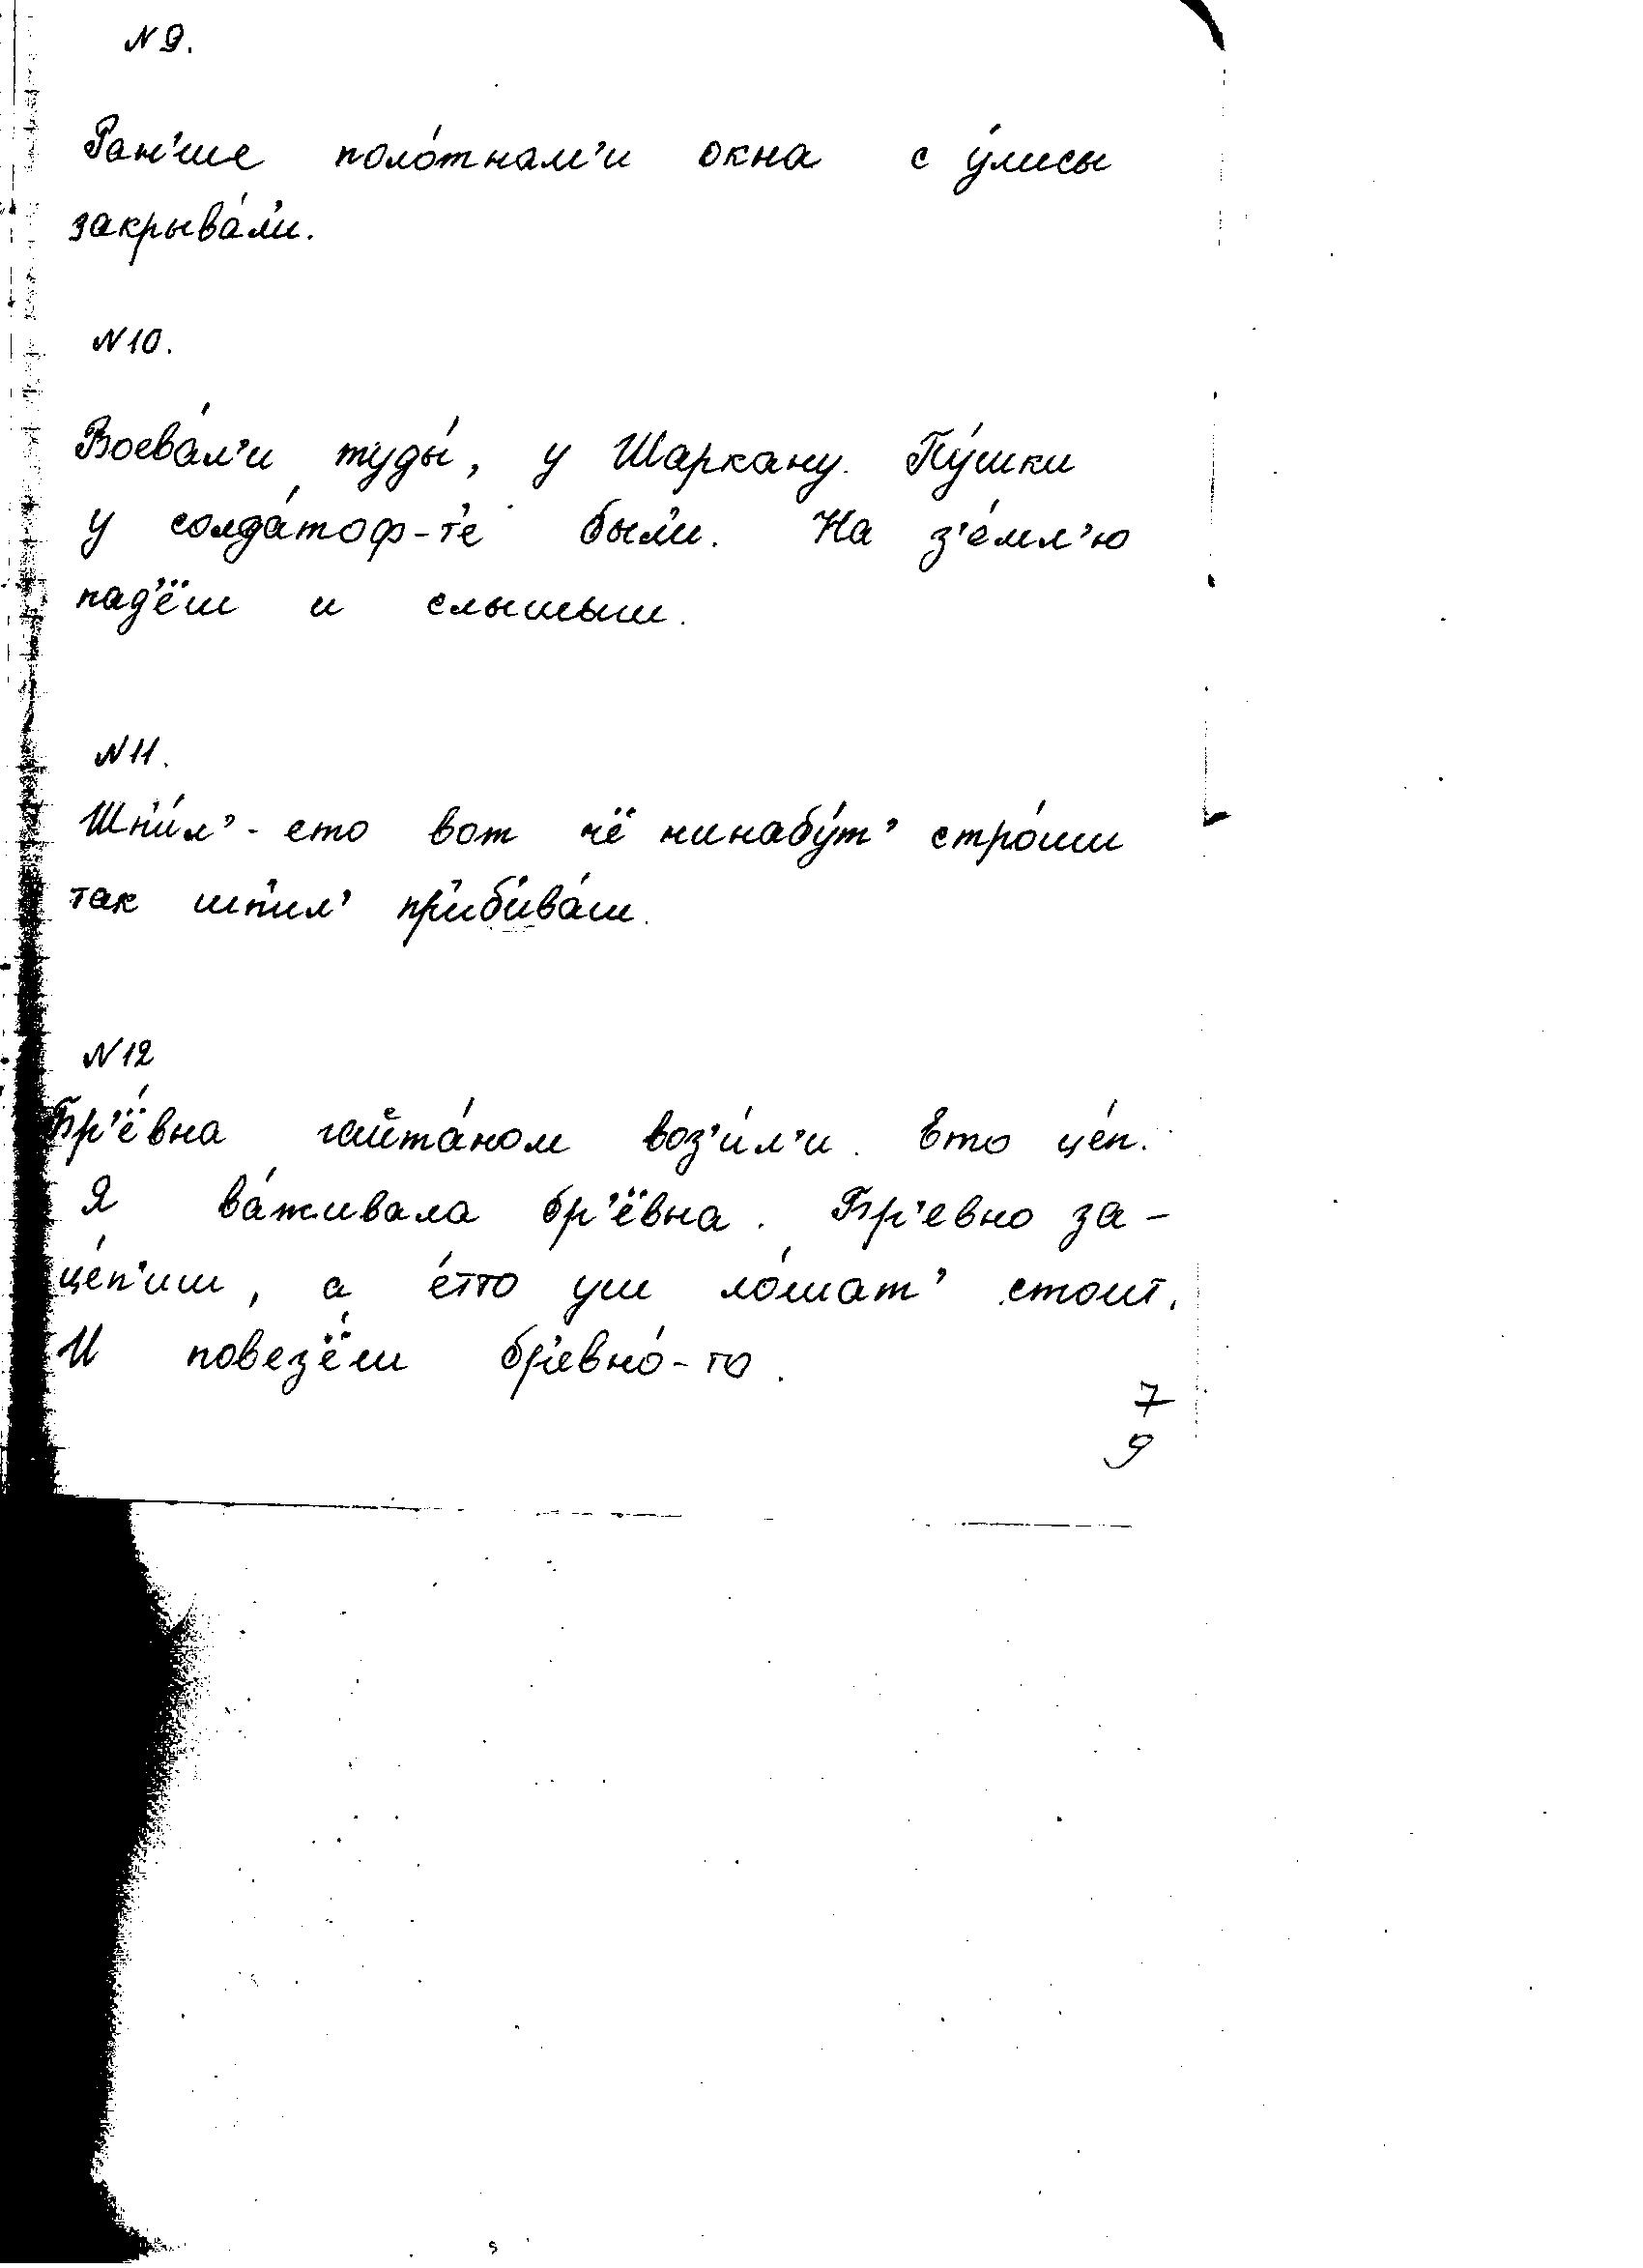 N 9.
Ран'ше поло́тнам'и окна с у́лисы
закрыва́л'и.
N 10.
Воева́л'и туды́, у Шаркану. Пу́шки
у солда́тоф-т'е был'и. На з'е́мл'ю
пад'ёш и слышыш.
N 11.
Шп'и́л' - ето вот чё нинабу́т' стро́иш
так шп'ил' пр'иб'ива́ш.
N 12
Бр'ё́вна гайта́ном воз'и́л'и. Ето це́п.
Я ва́живала бр'ёвна. Бр'евно за-
це́п'иш, а е́тто уш ло́шат' стоит.
И повез'ё́ш бр'евно́-то.
7
9